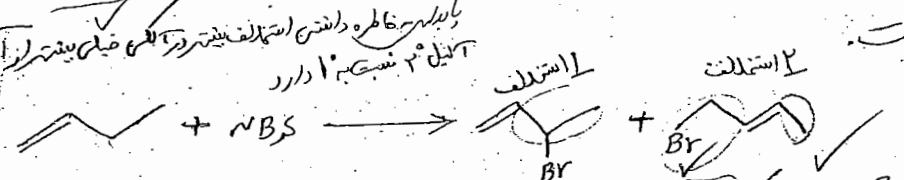 باید به خاطره داشتن استخلاف بیشتر در آلکن خیلی بیشتر از
آلیل ۳° نسبت به ۱° دارد
ت.
1 استخلاف
۲ استخلاف
+ NBS → + 
Br
Br